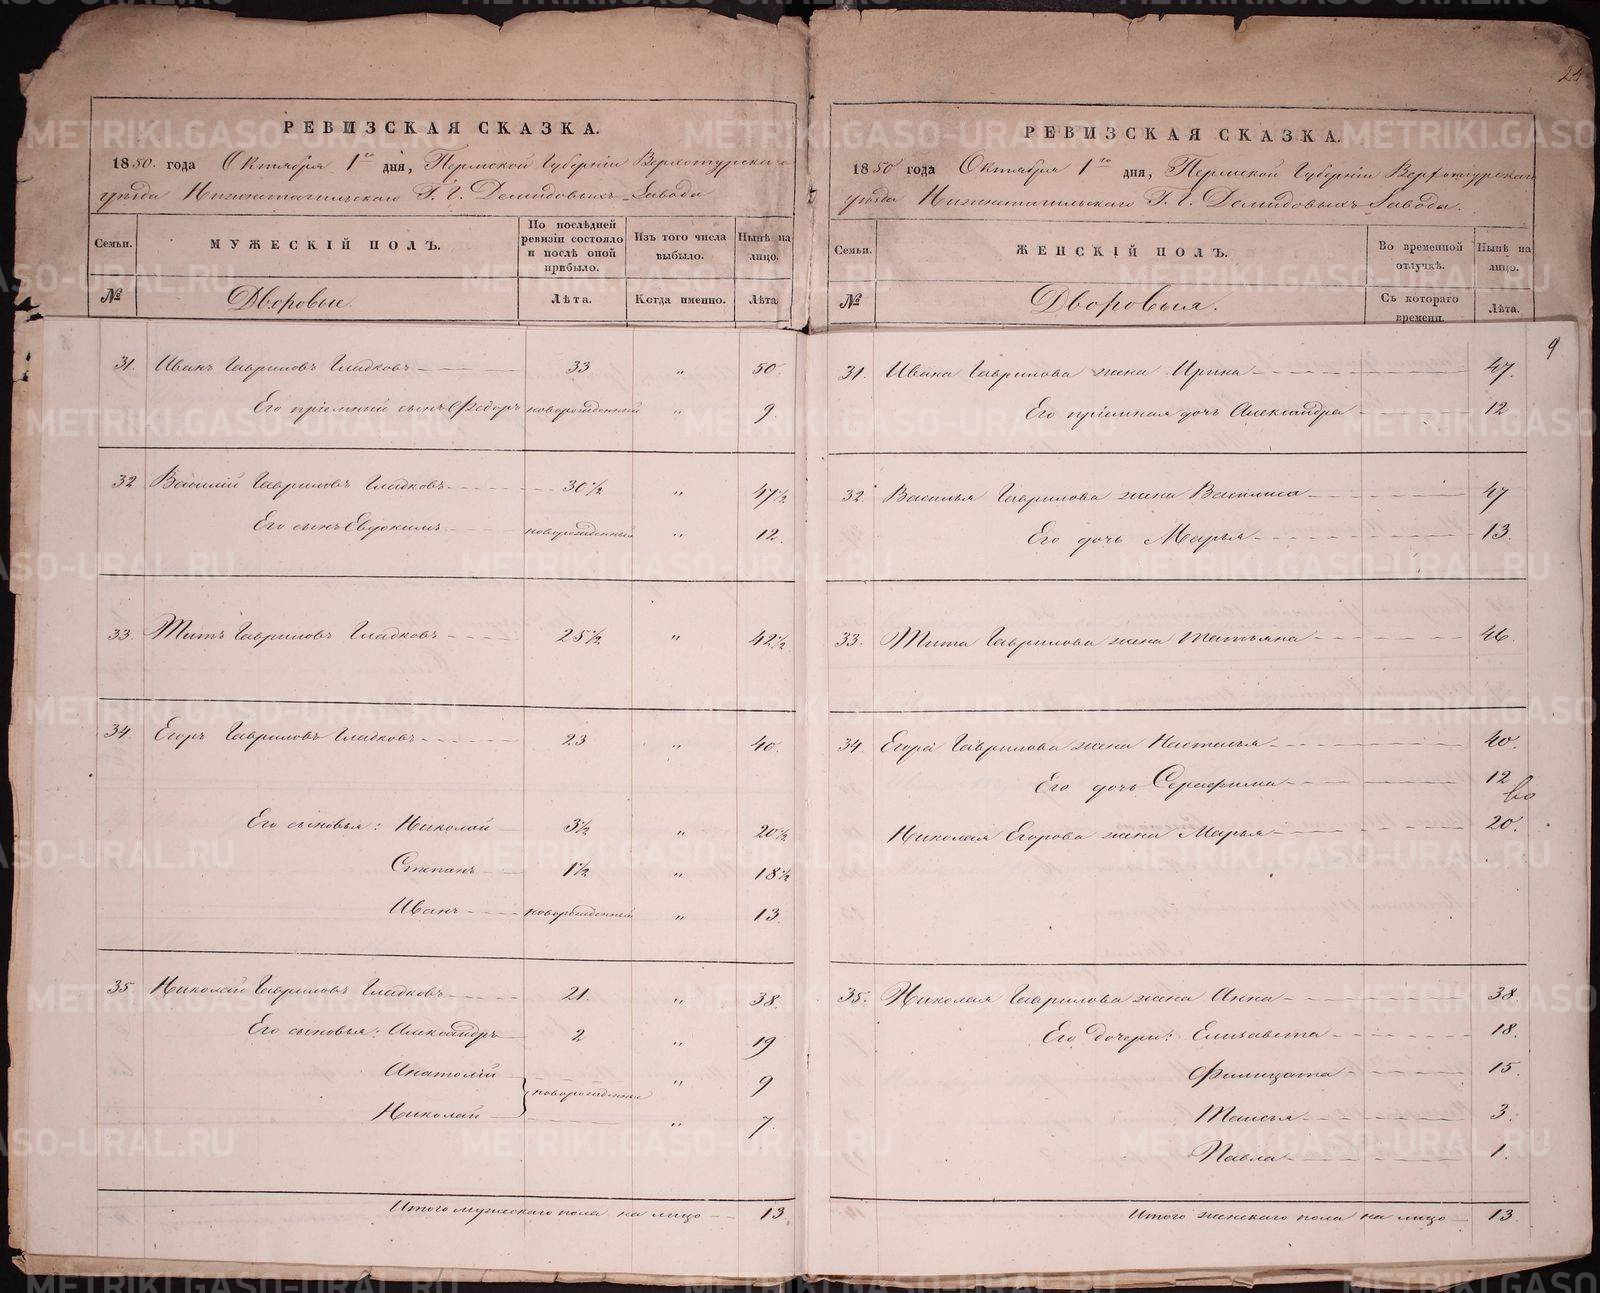 РЕВИЗСКАЯ СКАЗКА.
1850. года Октября 1го дня, Пермской Губерніи Верхотурскаго
уѣзда Нижнетагильскаго Г. Г. Демидовыхъ Завода
Семьи. МУЖЕСКІЙ ПОЛЪ. По послѣдней ревизіи состояло и послѣ оной прибыло. Изъ того числа выбыло. Нынѣ на лицо.
№ Дворовые. Лѣта. Когда именно. Лѣта
31. Иванъ Гавриловъ Гладковъ 33 " 50.
Его пріемный сынъ Ѳедоръ новорожденный " 9.
32 Василій Гавриловъ Гладковъ 30½ " 47½
Его сынъ Евдокимъ новорожденный " 12.
33. Титъ Гавриловъ Гладковъ 25½ " 42½
34. Егоръ Гавриловъ Гладковъ 23 " 40.
Его сыновья: Николай 3½ " 20½
Степанъ 1½ " 18½
Иванъ новорожденный " 13.
35 Николай Гавриловъ Гладковъ 21. " 38.
Его сыновья: Александръ 2 " 19
Анатолій новорожденные " 9
Николай " 7.
Итого мужескаго пола на лицо 13.
24
РЕВИЗСКАЯ СКАЗКА.
1850 года Октября 1го дня, Пермской Губерніи Верхотурскаго
уѣзда Нижнетагильскаго Г. Г. Демидовыхъ Завода.
Семьи. ЖЕНСКІЙ ПОЛЪ. Во временной отлучкѣ. Нынѣ на лицо.
№ Дворовыя. Съ котораго времени. Лѣта.
9
31. Ивана Гаврилова жена Ирина 47.
Его пріемная дочь Александра 12
32. Василья Гаврилова жена Василиса 47
Его дочь Марья 13.
33. Тита Гаврилова жена Татьяна 46.
34. Егора Гаврилова жена Настасья 40.
Его дочь Серафима 12
Николая Егорова жена Марья 20.
35. Николая Гаврилова жена Анна 38.
Его дочери: Елизавета 18.
Филицата 15.
Таисья 3.
Павла 1.
Итого женскаго пола на лицо 13.
METRIKI.GASO-URAL.RU